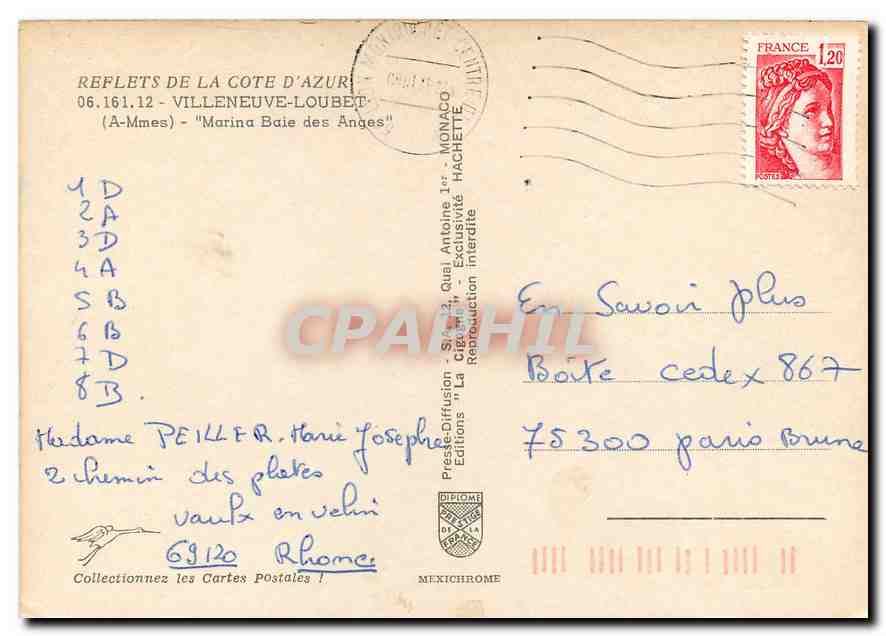 REFLETS DE LA COTE D'AZUR
06.161.12 - VILLENEUVE-LOUBET
(A-Mmes) - "Marina Baie des Anges"
1 D
2 A
3 D
4 A
5 B
6 B
7 D
8 B.
Madame PEILLER. Marie Josephe
2 chemin des plates
vaulx en velin
69120 Rhone
Collectionnez les Cartes Postales !
Presse-Diffusion - S.A. 12, Quai Antoine 1er - MONACO
Editions "La Cigogne" - Exclusivité HACHETTE
Reproduction interdite
DIPLOME
PRESTIGE
DE LA
FRANCE
MEXICHROME
CENTRE
FRANCE
1,20
POSTES
En Savoir plus
Boîte cedex 867
75300 paris Brune
CPAPHIL